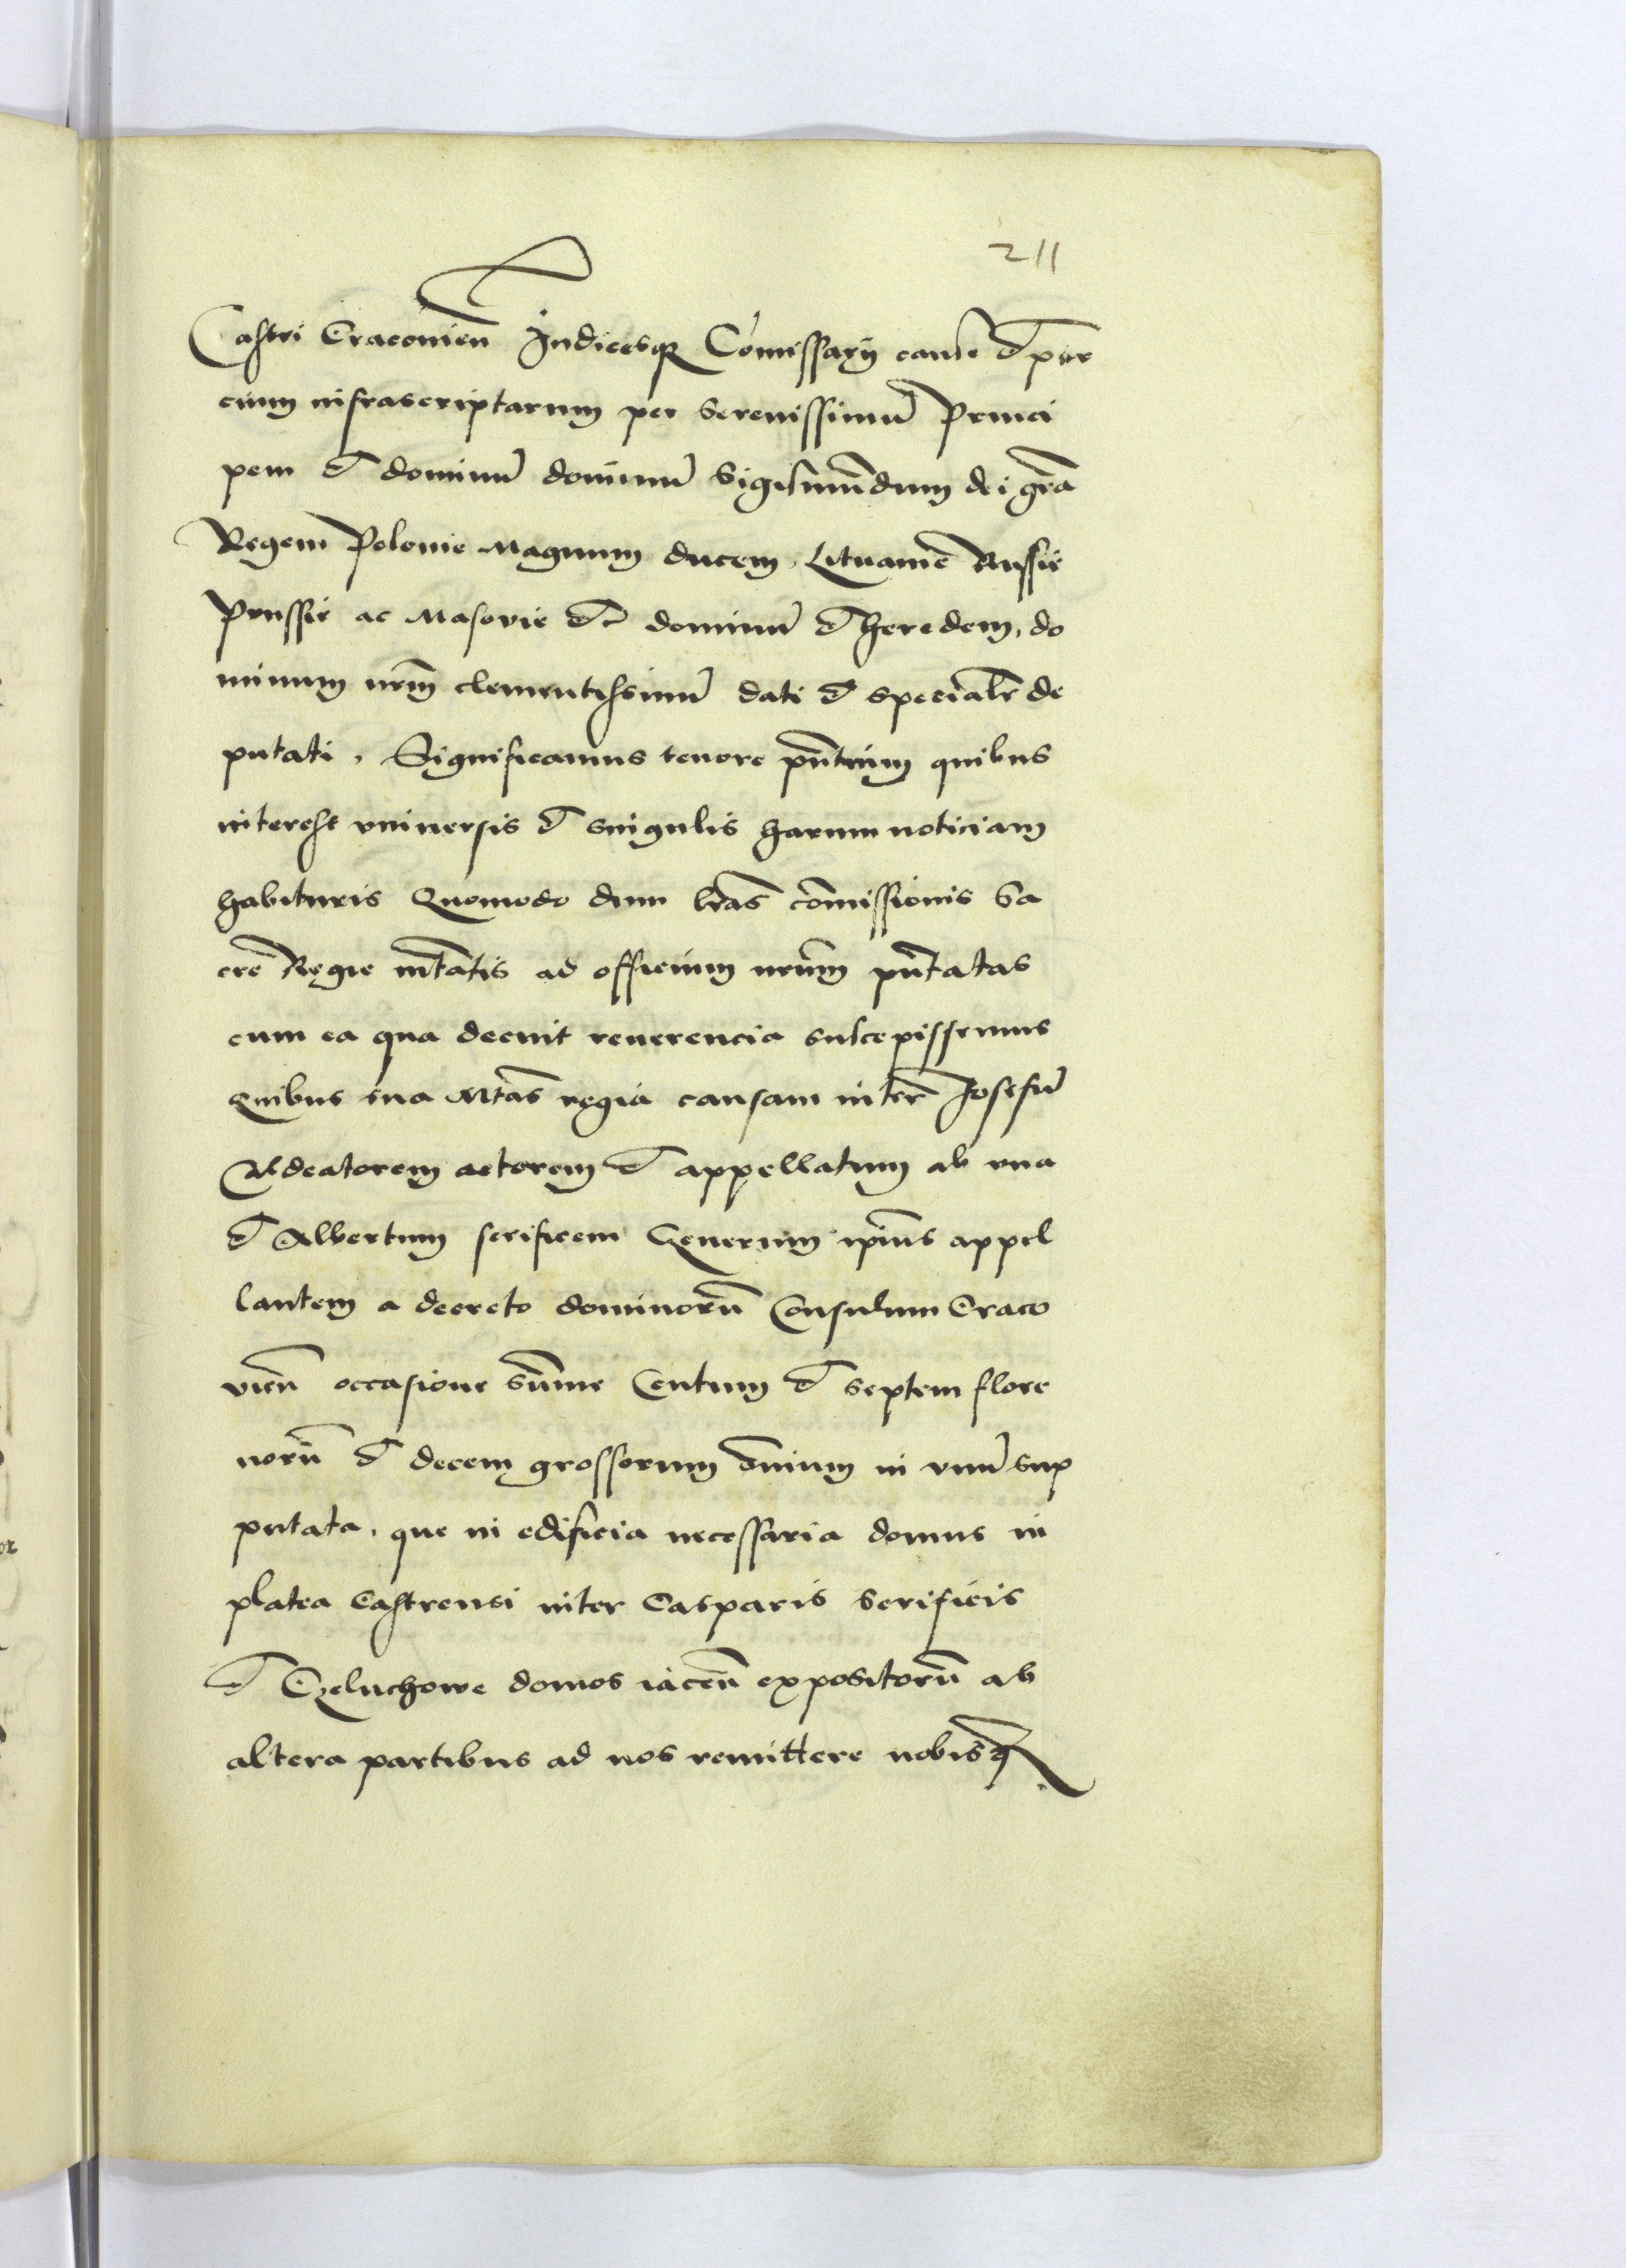 211
Castri Cracovien̄ Judicesqꝫ Com̄issarij cause et par
cium infrascriptarum per Serenissimū Princi
pem et dominū dominū Sigismūndum dei gr̄a
Regem Polonie Magnum ducem Lituanie Russie
Prussie ac Masovie etc̄ dominū et heredem, do
minum nr̄m clementissimū dati et specialr̄ de
putati, Significamus tenore pn̄tium quibus
interest vniuersis et singulis harum noticiam
habituris Quomodo dum lr̄as com̄issionis Sa
cre Regie mt̄atis ad officium nr̄um pn̄tatas
cum ea qua decuit reuerencia suscepissemus
Quibus sua Mt̄as regia causam inter Josefū
Aldeatorem actorem et appellatum ab vna
et Albertum serificem Generum ip̄ius appel
lantem a decreto dominorū Consulum Craco
vien̄ occasione sum̄e Centum et septem flore
norū et decem grossorum om̄ium in vnū sup
putata, que in edificia necessaria domus in
platea Castrensi inter Casparis Serificis
et Czeluchowe domos iacen̄ expositorū ab
altera partibus ad nos remittere nobisqꝫ